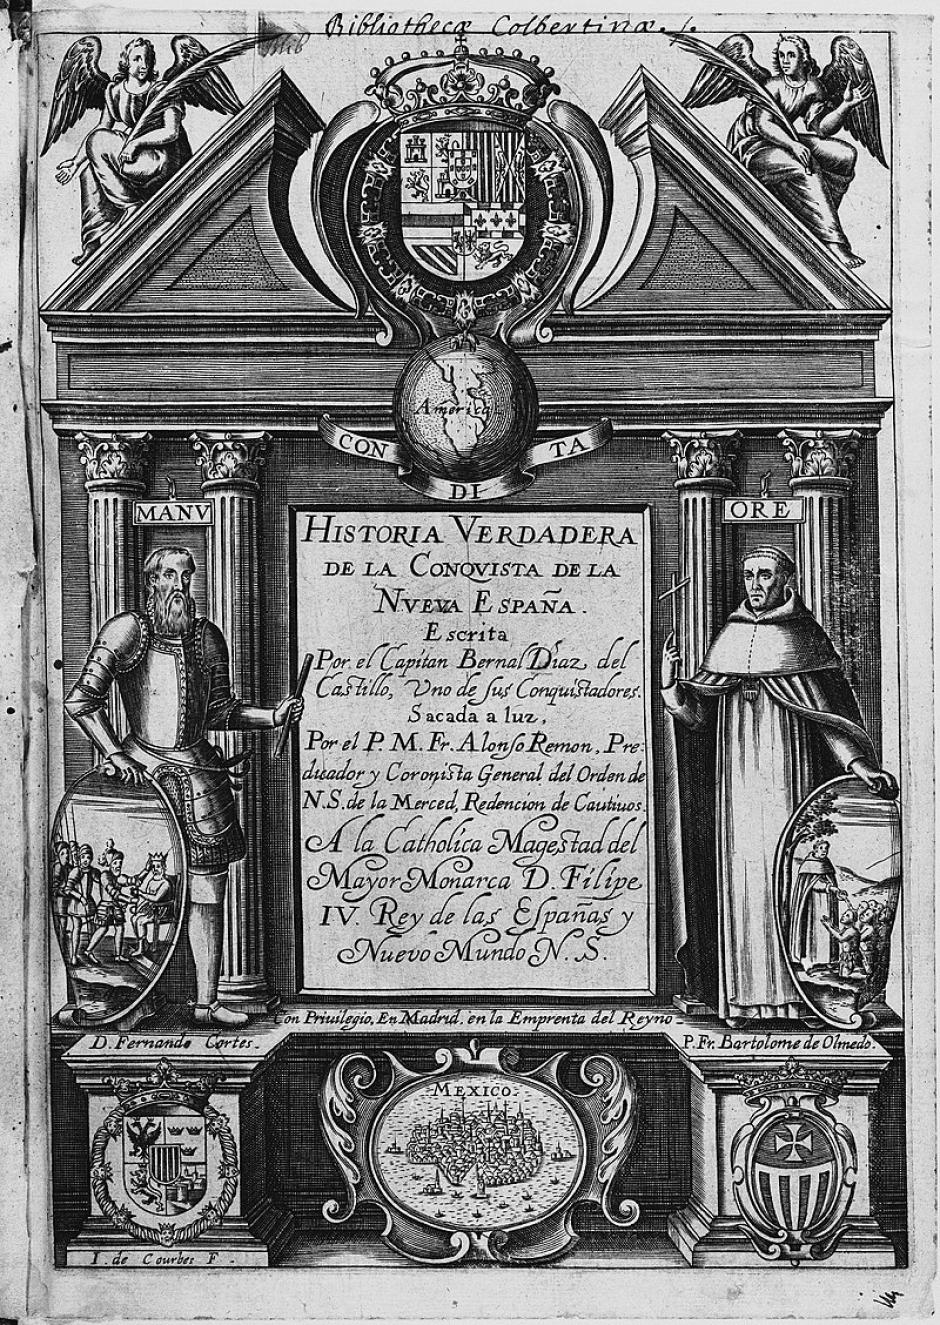 Bibliothecæ Colbertinæ.
America
CON
DI
TA
MANV
ORE
HISTORIA VERDADERA
DE LA CONQVISTA DE LA
NVEVA ESPAÑA.
Escrita
Por el Capitan Bernal Diaz, del
Castillo, Vno de sus Conquistadores.
Sacada a luz,
Por el P. M. Fr. Alonso Remon, Pre-
dicador y Coronista General del Orden de
N. S. de la Merced, Redencion de Cautiuos.
A la Catholica Magestad del
Mayor Monarca D. Filipe
IV. Rey de las Españas y
Nuevo Mundo N. S.
Con Priuilegio. En Madrid. en la Emprenta del Reyno.
D. Fernando Cortes.
P. Fr. Bartolome de Olmedo.
MEXICO.
I. de Courbes F.